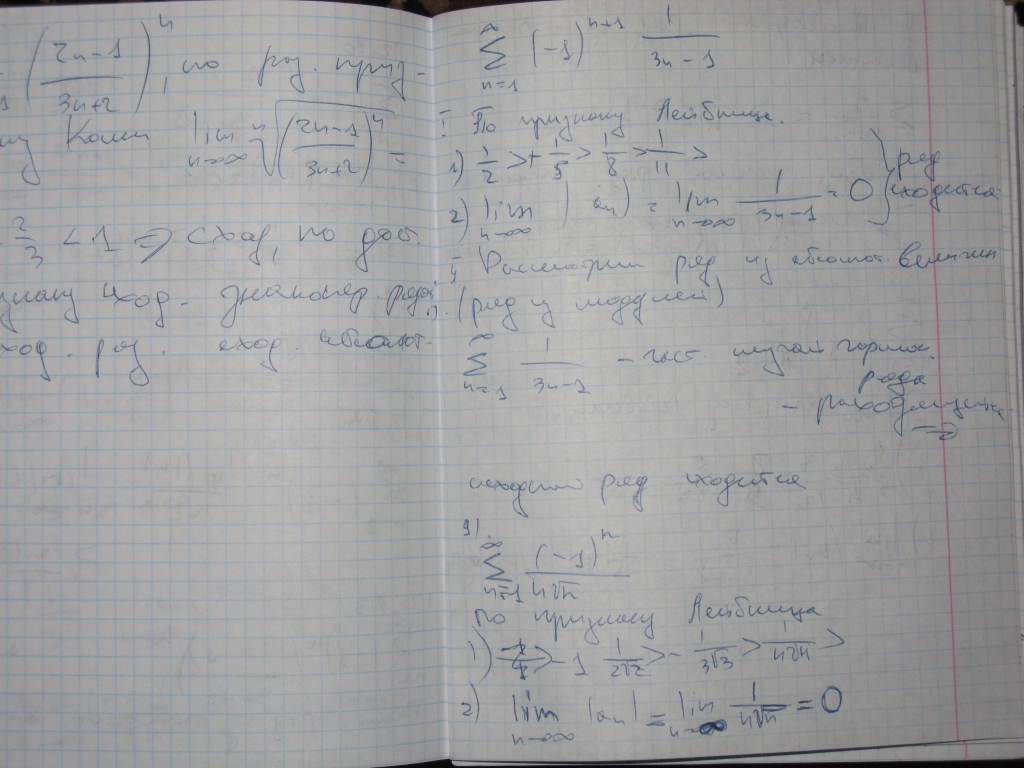 (2n-1 / 3n+2)^n, по рад. приз-
Коши lim n→∞ ⁿ√((2n-1 / 3n+2)^n) =
2/3 < 1 ⇒ сход, по дост.
сход. знакопер. ряда
сход. рад. сход. абсолют-
∞ Σ n=1 (-1)^(n+1) 1/(3n-1)
I По признаку Лейбница.
1) 1/2 > + 1/5 > 1/8 > 1/11 >
2) lim n→∞ |an| = lim n→∞ 1/(3n-1) = 0
ряд сходится
II Рассмотрим ряд из абсолют. величин
(ряд из модулей)
∞ Σ n=1 1/(3n-1) - част. случай гармон.
ряда
- расходящийся ⇒
исходный ряд сходится
9).
∞ Σ n=1 (-1)^n / n√n
По признаку Лейбница
1) -1 1/2√2 > - 1/3√3 > 1/4√4 >
2) lim n→∞ |an| = lim n→∞ 1/n√n = 0